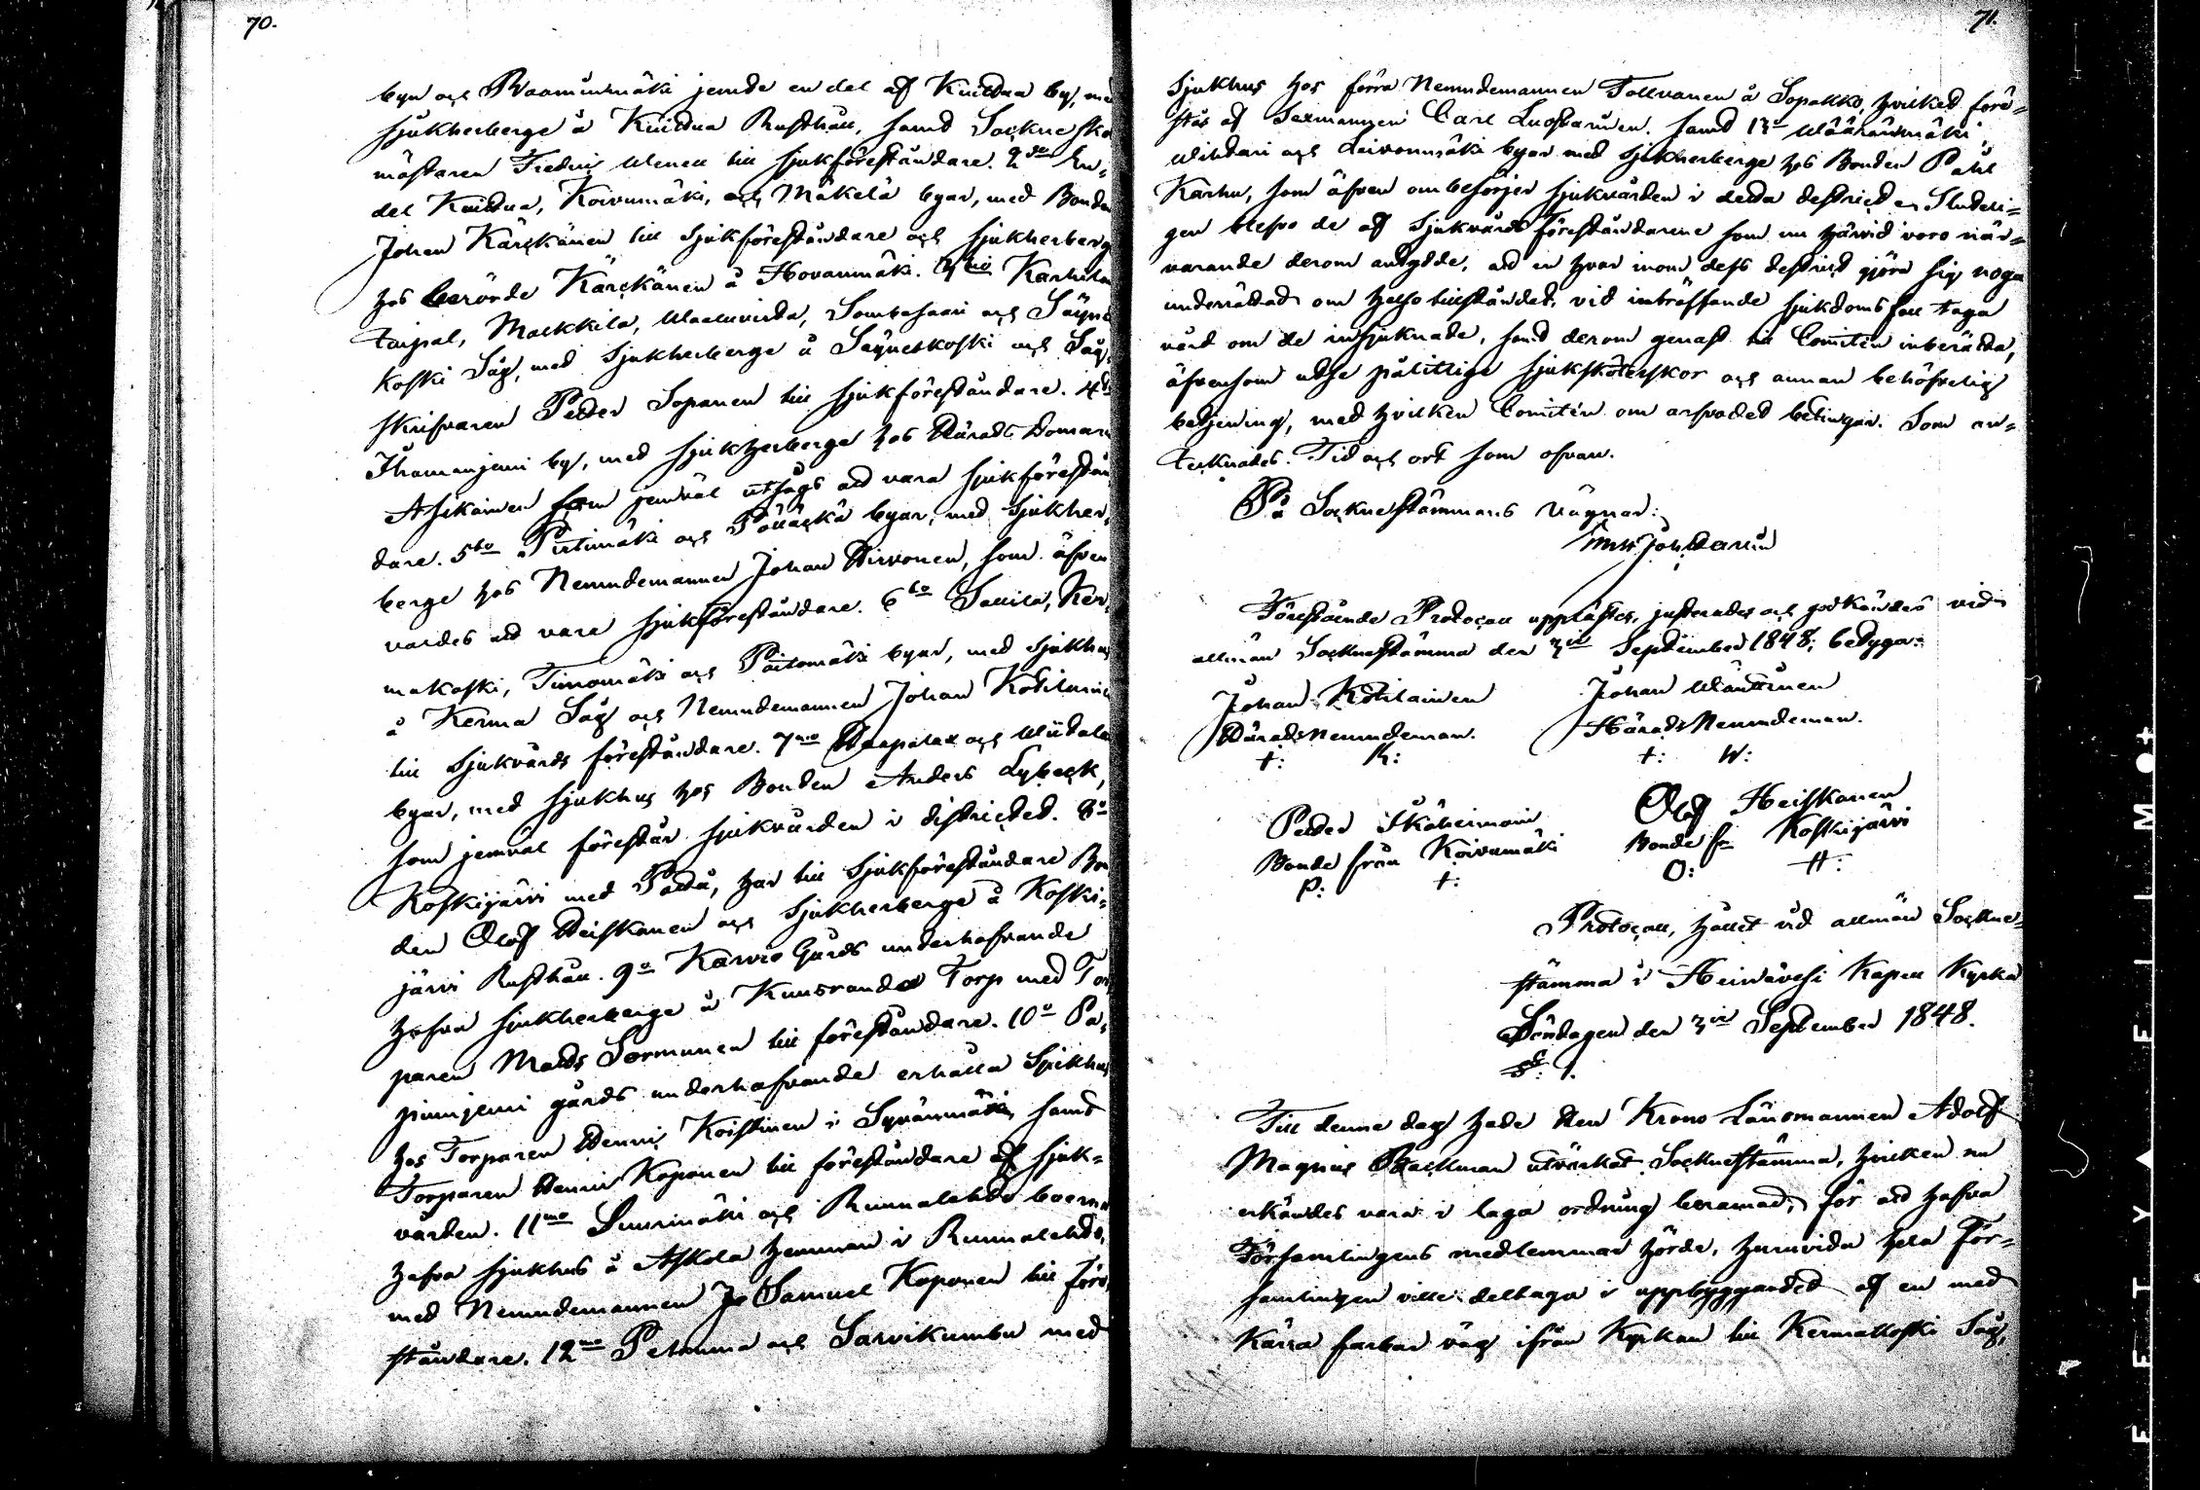 70.
byn och Raamunmäki jemte en del af Kuittua by, med
sjukherberge å Kuittua Rusthåll, samt Sockne sko
mästaren Fredric Alenell till sjukföreståndare. 2do En
del Kuittua, Koivumäki, och Mäkelä byar, med Bonden
Johan Kärckänen till Sjukföreståndare och sjukherberge
hos berörde Kärckänen å Hovanmäki. 3tio Karhila
taipal, Malkkila, Sombasaari och Säynet
koski Såg, med Sjukherberge å Säynetkoski och Såg
skrifvaren Petter Sopanen till sjukföreståndare. 4to
Ihamaniemi by, med sjukherberge hos Härads Domaren
Asikainen som jemväl utsågs att vara sjukförestån
dare. 5to Pirtimäki och Pölläckä byar, med Sjukher
berge hos Nemndemannen Johan Hirvonen, som äfven
vardes att vara sjukföreståndare. 6to Sallila, Ker
makoski, Timomäki och Paitomäki byar, med sjukhus
å Kerma Såg och Nemndemannen Johan Kotilainen
till sjukvårds föreståndare. 7mo Haapalax och Wiidala
byar, med sjukhus hos Bonden Anders Lybeck,
som jemväl förestår sjukvården i districtet. 8o
Koskijärvi med Pältä, har till Sjukföreståndare Bon
den Olof Heiskanen och Sjukherberge å Koski=
järvi Rusthåll. 9o Karvio Gårds underhafvande
hafva sjukherberge å Kuusranda Torp med Tor
paren Matts Sormunen till föreståndare. 10o Pa
piniemi gårds underhafvande erhålla Sjukhus
hos Torparen Henric Koistinen i Syvänmäki, samt
Torparen Henric Koponen till föreståndare af sjuk=
vården. 11mo Suurimäki och Rummalahdo boerne
hafva sjukhus å Askola hemman i Rummalahdo,
med Nemndemannen Jo Samuel Koponen till före
ståndare. 12mo Petruma och Sarvikumbu med
71.
Sjukhus hos förra Nemndemannen Tollvanen å Sopakko, hvilket före=
stås af Sexmannen Carl Luostarinen. Samt 13o Wääränmäki
Wihdari och Leivonmäki byar med Sjukherberge hos Bonden Påhl
Karhu, som äfven ombesörjer sjukvården i detta destrict. Sluteli=
gen blefvo de af Sjukvårds Föreståndarene som nu härvid voro när=
varande derom antydde, att en hvar inom dess destrict gjöra sig noga
underrättad om helsotillståndet, vid inträffande sjukdomsfall taga
vård om de insjuknade, samt derom genast till Comitén inberätta,
äfvensom utse pålitlige sjukskötterskor och annan behöfvelig
betjening, med hvilken Comitén om arfvodet betingar. Som an=
tecknades. Tid och ort som ofvan.
På Sockne stämmans vägnar:
Joh. Carlin
Förestående Protocoll upplästes, justerades och godkändes vid
allmän Socknestämma den 3ie September 1848; betyga:
Johan Kotilainen Johan Wänttinen
Härads Nemndeman. Härads Nemndeman.
+: K: +: W:
Petter Ikäheimoin Olof Heiskanen
Bonde från Koivumäki Bonde fr. Koskijärvi
P: +: O: H:
Protocoll, hållet vid allmän Sockne=
stämma i Heinävesi Kapell Kyrka
Söndagen den 3ie September 1848.
§: 1.
Till denne dag hade Herr Krono Länsmannen Adolf
Magnus Backman utvärkat Socknestämma, hvilken nu
erkändes vara i laga ordning beramad, för att hafva
Församlingens medlemmar hörde, huruvida hela För=
samlingen ville deltaga i uppbyggandet af en med
Kärra farbar väg ifrån Kyrkan till Kermakoski Såg,
FILM